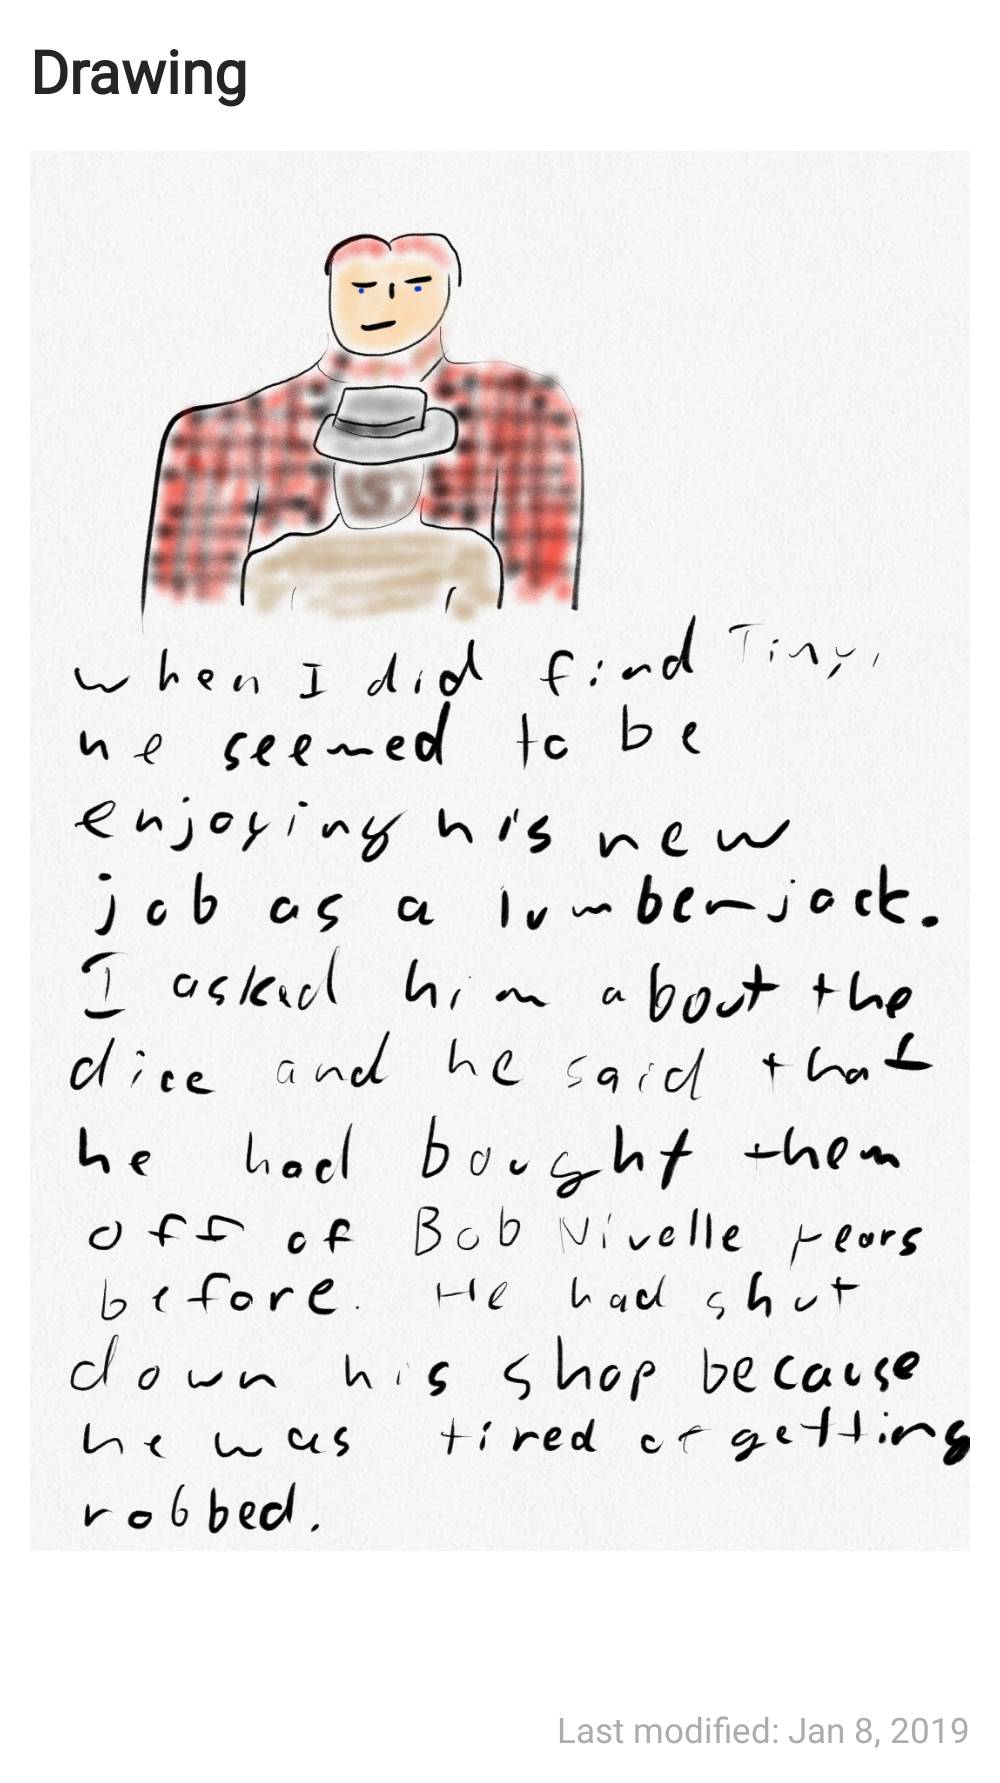 Drawing
When I did find Tiny,
he seemed to be
enjoying his new
job as a lumberjack.
I asked him about the
dice and he said that
he had bought them
off of Bob Nivelle years
before. He had shut
down his shop because
he was tired of getting
robbed.
Last modified: Jan 8, 2019